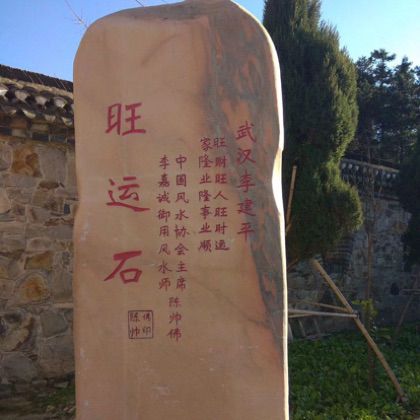 武汉李建平
旺财旺人旺时运
家隆业隆事业顺
中国风水协会主席 陈帅佛
李嘉诚御用风水师
旺运石
佛印
陈帅